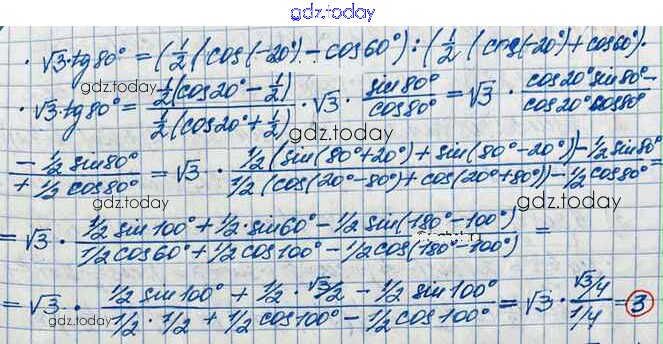 gdz.today
· √3·tg80° = (½(cos(-20°) - cos60°) : (½(cos(-20°) + cos60°).
· √3·tg80° = ½(cos20° - ½) / ½(cos20° + ½) · √3 · sin80° / cos80° = √3 · cos20° sin80° - / cos20° cos80°
gdz.today
gdz.today
- ½ sin80° / + ½ cos80° = √3 · ½(sin(80°+20°) + sin(80°-20°)) - ½ sin80° / ½(cos(20°-80°) + cos(20°+80°)) - ½ cos80° =
gdz.today
= √3 · ½ sin100° + ½·sin60° - ½ sin(180°-100°) / ½ cos60° + ½ cos100° - ½ cos(180°-100°) =
gdz.today
= √3 · ½ sin100° + ½ · √3/2 - ½ sin100° / ½ · ½ + ½ cos100° - ½ cos100° = √3 · √3/4 / 1/4 = 3
gdz.today